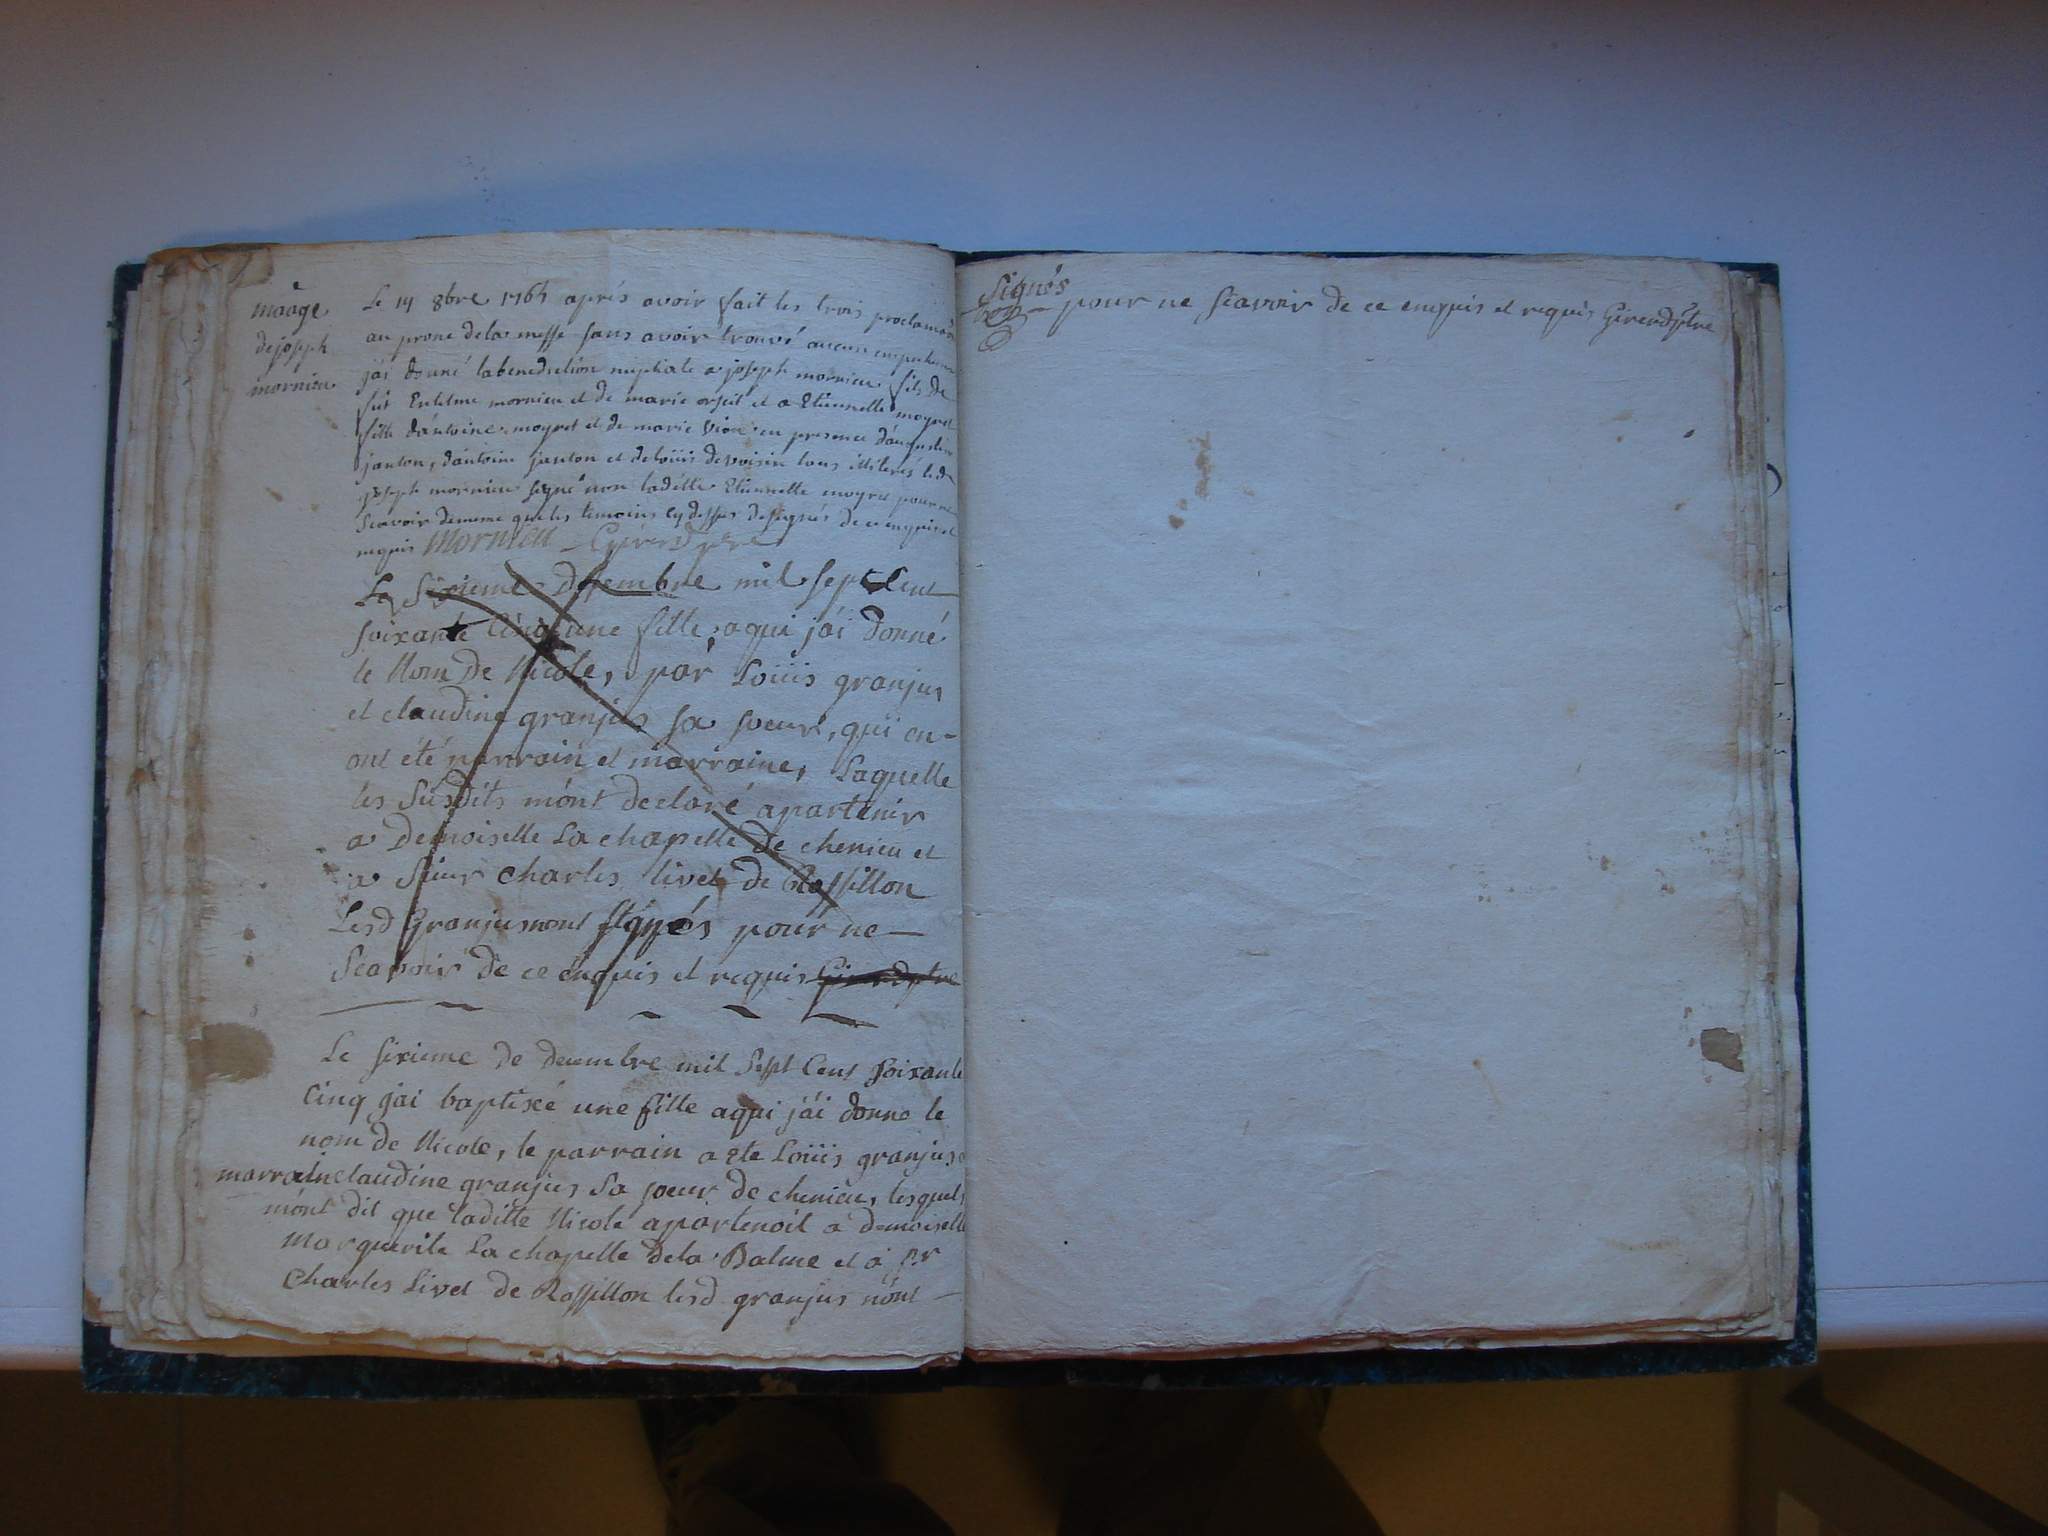 maàge
de joseph
mornieu
Le 14 8bre 1765 aprés avoir fait les trois proclamaõ
au prone de la messe sans avoir trouvé aucun empechem
jái donné la benediction nuptiale a joseph mornieu fils de
fut Entelme mornieu et de marie orsel et a Etiennette moyret
fille dántoine moyret et de marie Vion en presence dáugustin
janton, dántoine janton et de loüis devoisin tous illiterés led
joseph mornieu signé non laditte Etiennette moyret pour ne
Scavoir de meme que les temoins cy dessus designés de ce enquis et
requis Mornieu - Girerd ptre
Le Sixieme Decembre mil sept Cent
soixante Cinq une fille a qui jái donné
le Nom de Nicole, par Loüis granjus
et claudine granjus sa soeur, qui en -
ont été parrain et marraine, Laquelle
les Susdits mónt declaré apartenir
a Demoiselle La chapelle de chenieu et
a Sieur Charles livet de Rossillon
Lesd Granjus nont signés pour ne -
Scavoir de ce énquis et requis Girerd ptre
Le sixieme de decembre mil Sept Cent soixante
Cinq jái baptixé une fille a qui jái donne le
nom de Nicole, le parrain a Ete Loüis granjus
marraine claudine granjus Sa soeur de chenieu, lesquels
mónt dit que laditte Nicole apartenoit a demoiselle
Marguerite La chapelle de la Balme et à Sr
Charles Livet de Rossillon lesd granjus nónt -
Signés
pour ne Scavoir de ce enquis et requis Girerd ptre